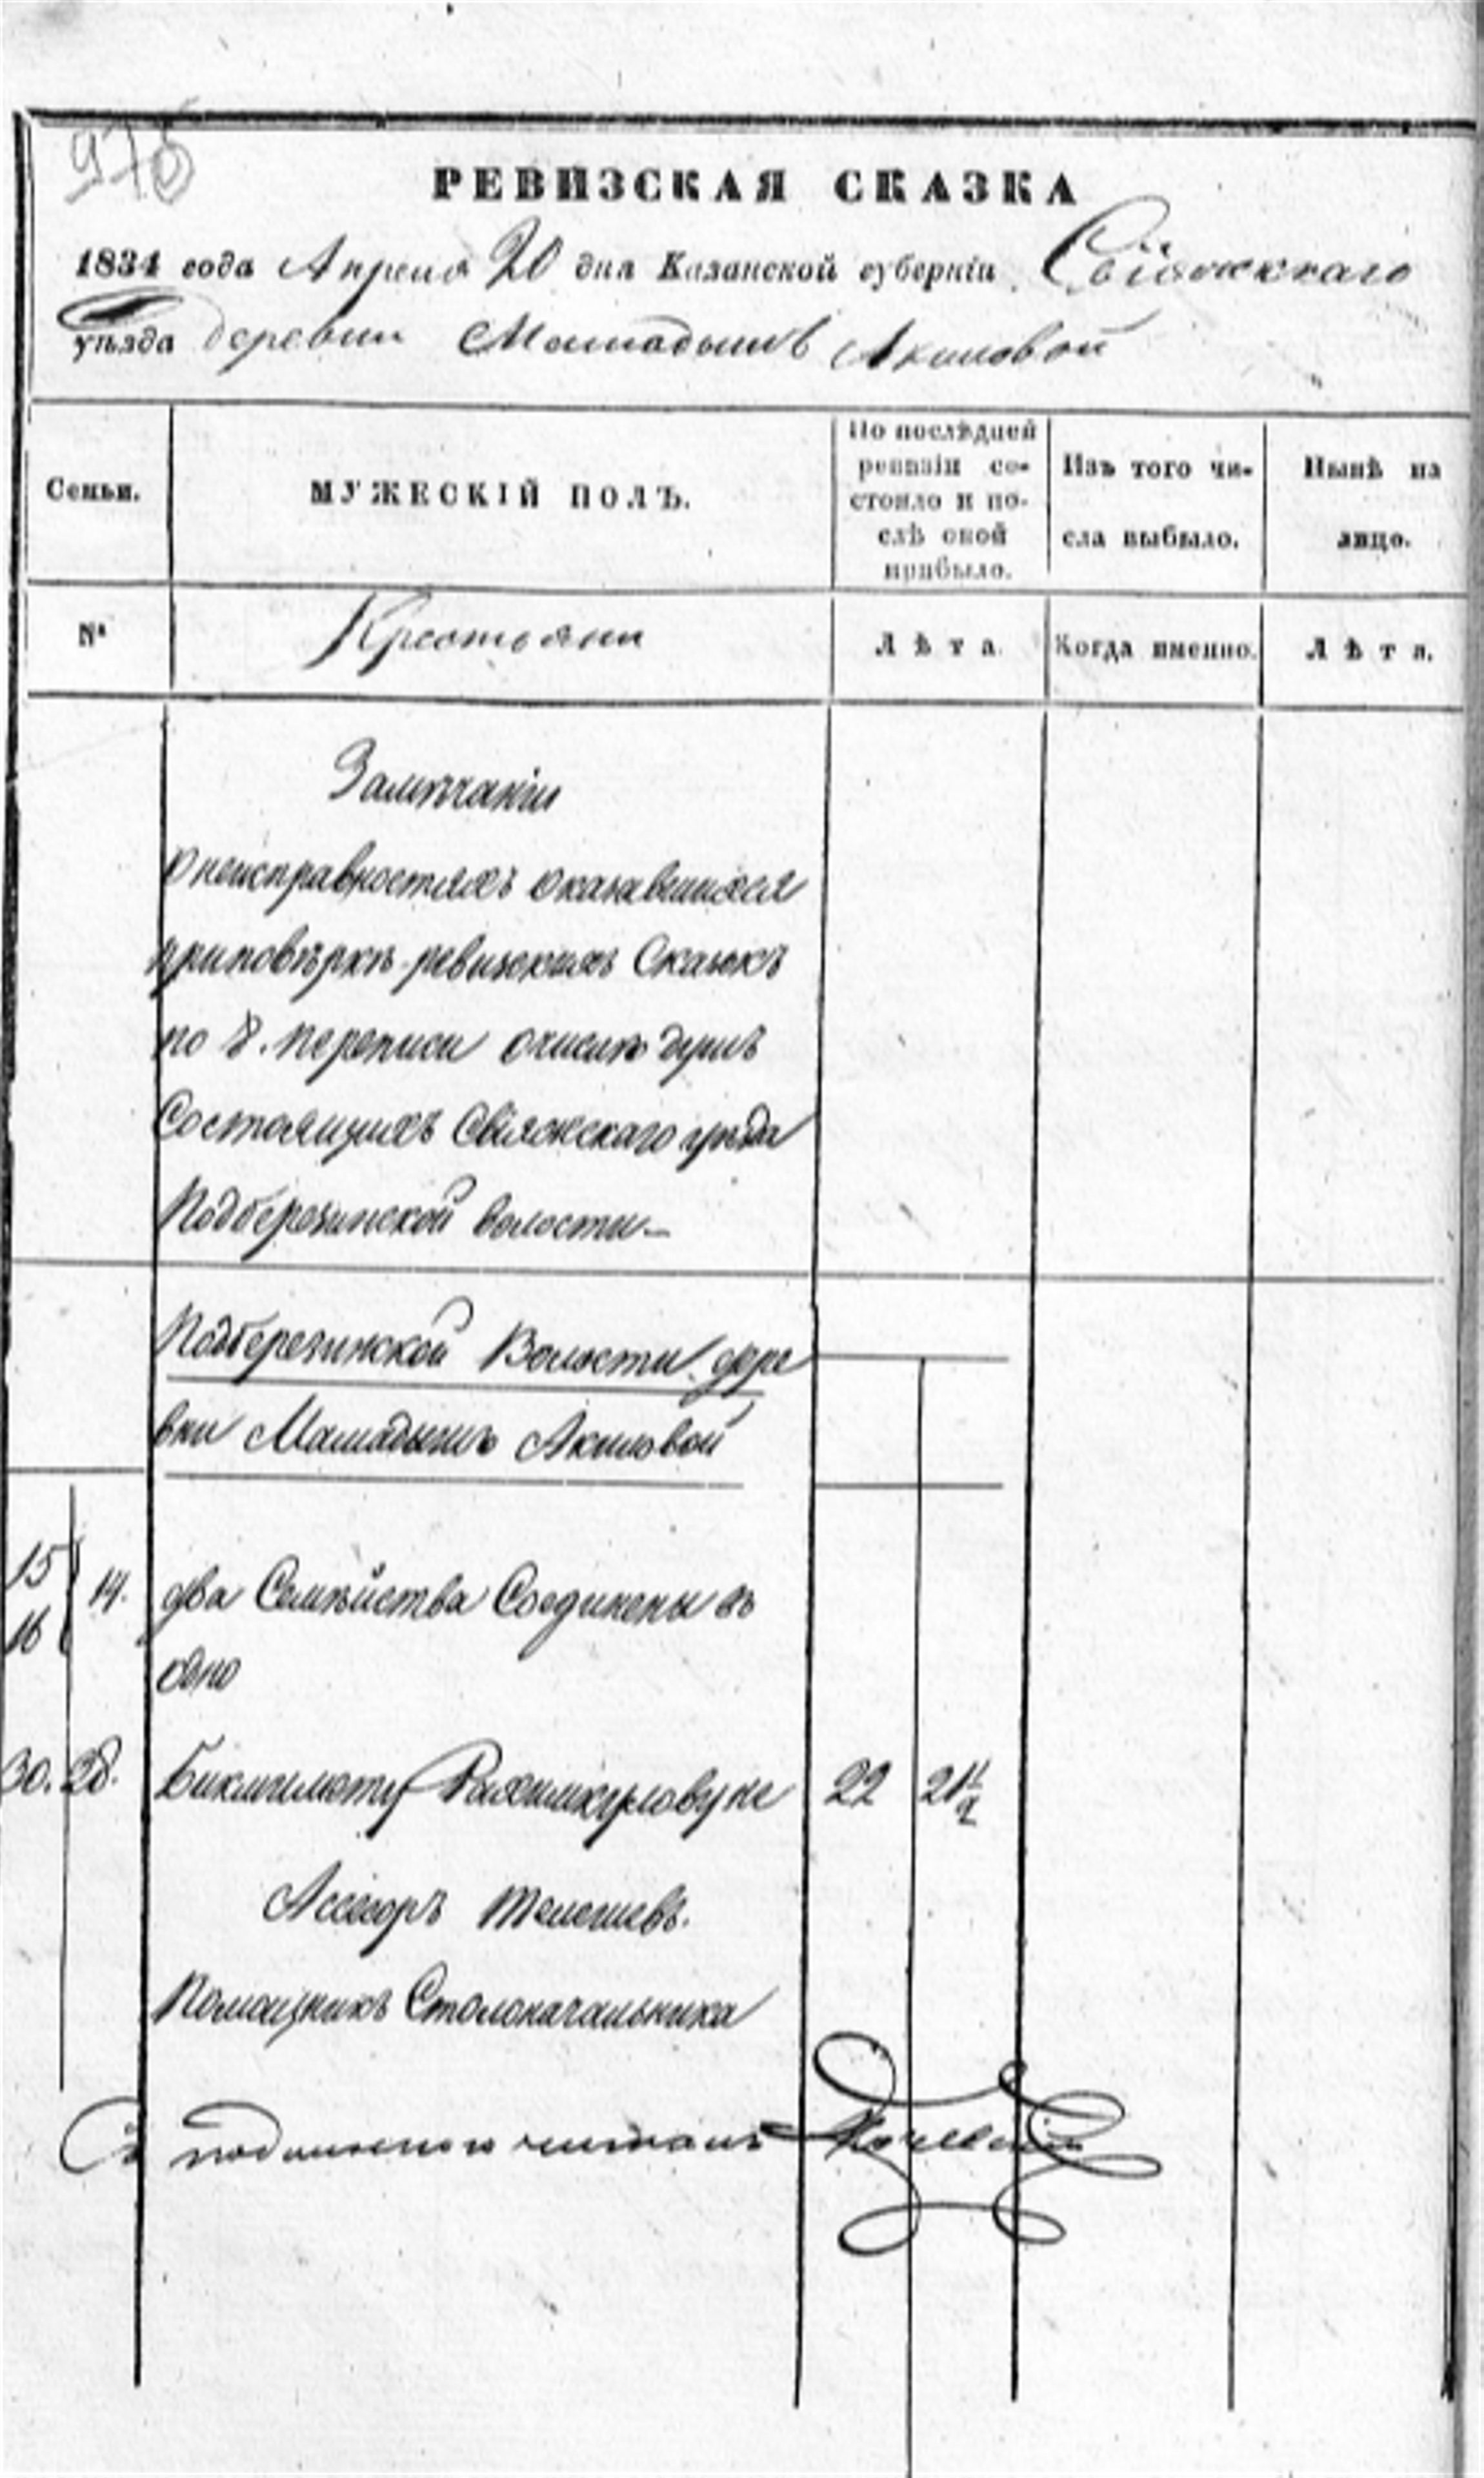 975
РЕВИЗСКАЯ СКАЗКА
1834 года Апреля 20 дня Казанской губерніи Свіяжскаго
уѣзда деревни Мамадышъ Акиловой
Семьи.
МУЖЕСКІЙ ПОЛЪ.
По послѣдней
ревизіи со-
стояло и по-
слѣ оной
прибыло.
Изъ того чи-
сла выбыло.
Нынѣ на
лицо.
№
Крестьяни
Лѣта.
Когда именно.
Лѣта.
Замѣчаніи
о неисправностяхъ оказавшихся
при повѣркѣ ревизскихъ Сказокъ
по 8. переписи очислѣ душъ
Состоящихъ Свіяжскаго уѣзда
Подберезинской волости
Подберезинской Волости дере
вни Мамадышъ Акиловой
15
16
14. два Семѣйства Соединены въ
одно
30. 28. Рахимкуловуне 22 21
Асесоръ Телешевъ.
Помощникъ Столоначальника
Съ подлиннымъ читалъ